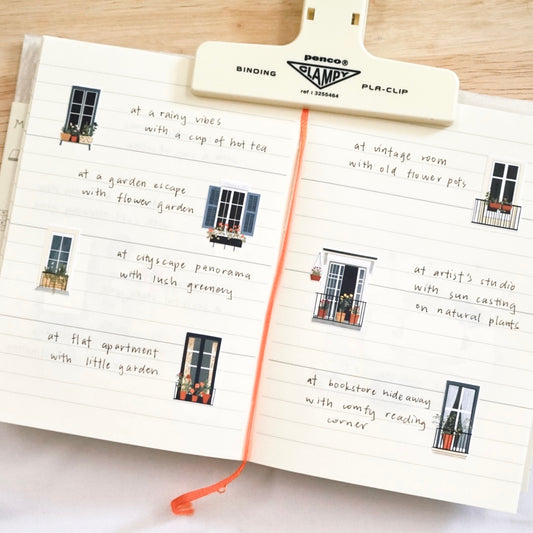 penco®
BINDING
CLAMPY
PLA-CLIP
ref : 3255464
at a rainy vibes
with a cup of hot tea
at a garden escape
with flower garden
at cityscape panorama
with lush greenery
at flat apartment
with little garden
at vintage room
with old flower pots
at artist's studio
with sun casting
on natural plants
at bookstore hideaway
with comfy reading
corner